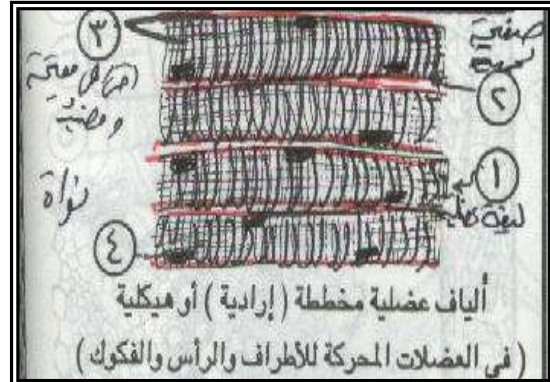 ٣
صفيحة
٢
أقراص معتمة
ومضيئة
١
نواة
ليفة عضلية
٤
ألياف عضلية مخططة ( إرادية ) أو هيكلية
( في العضلات المحركة للأطراف والرأس والفكوك )